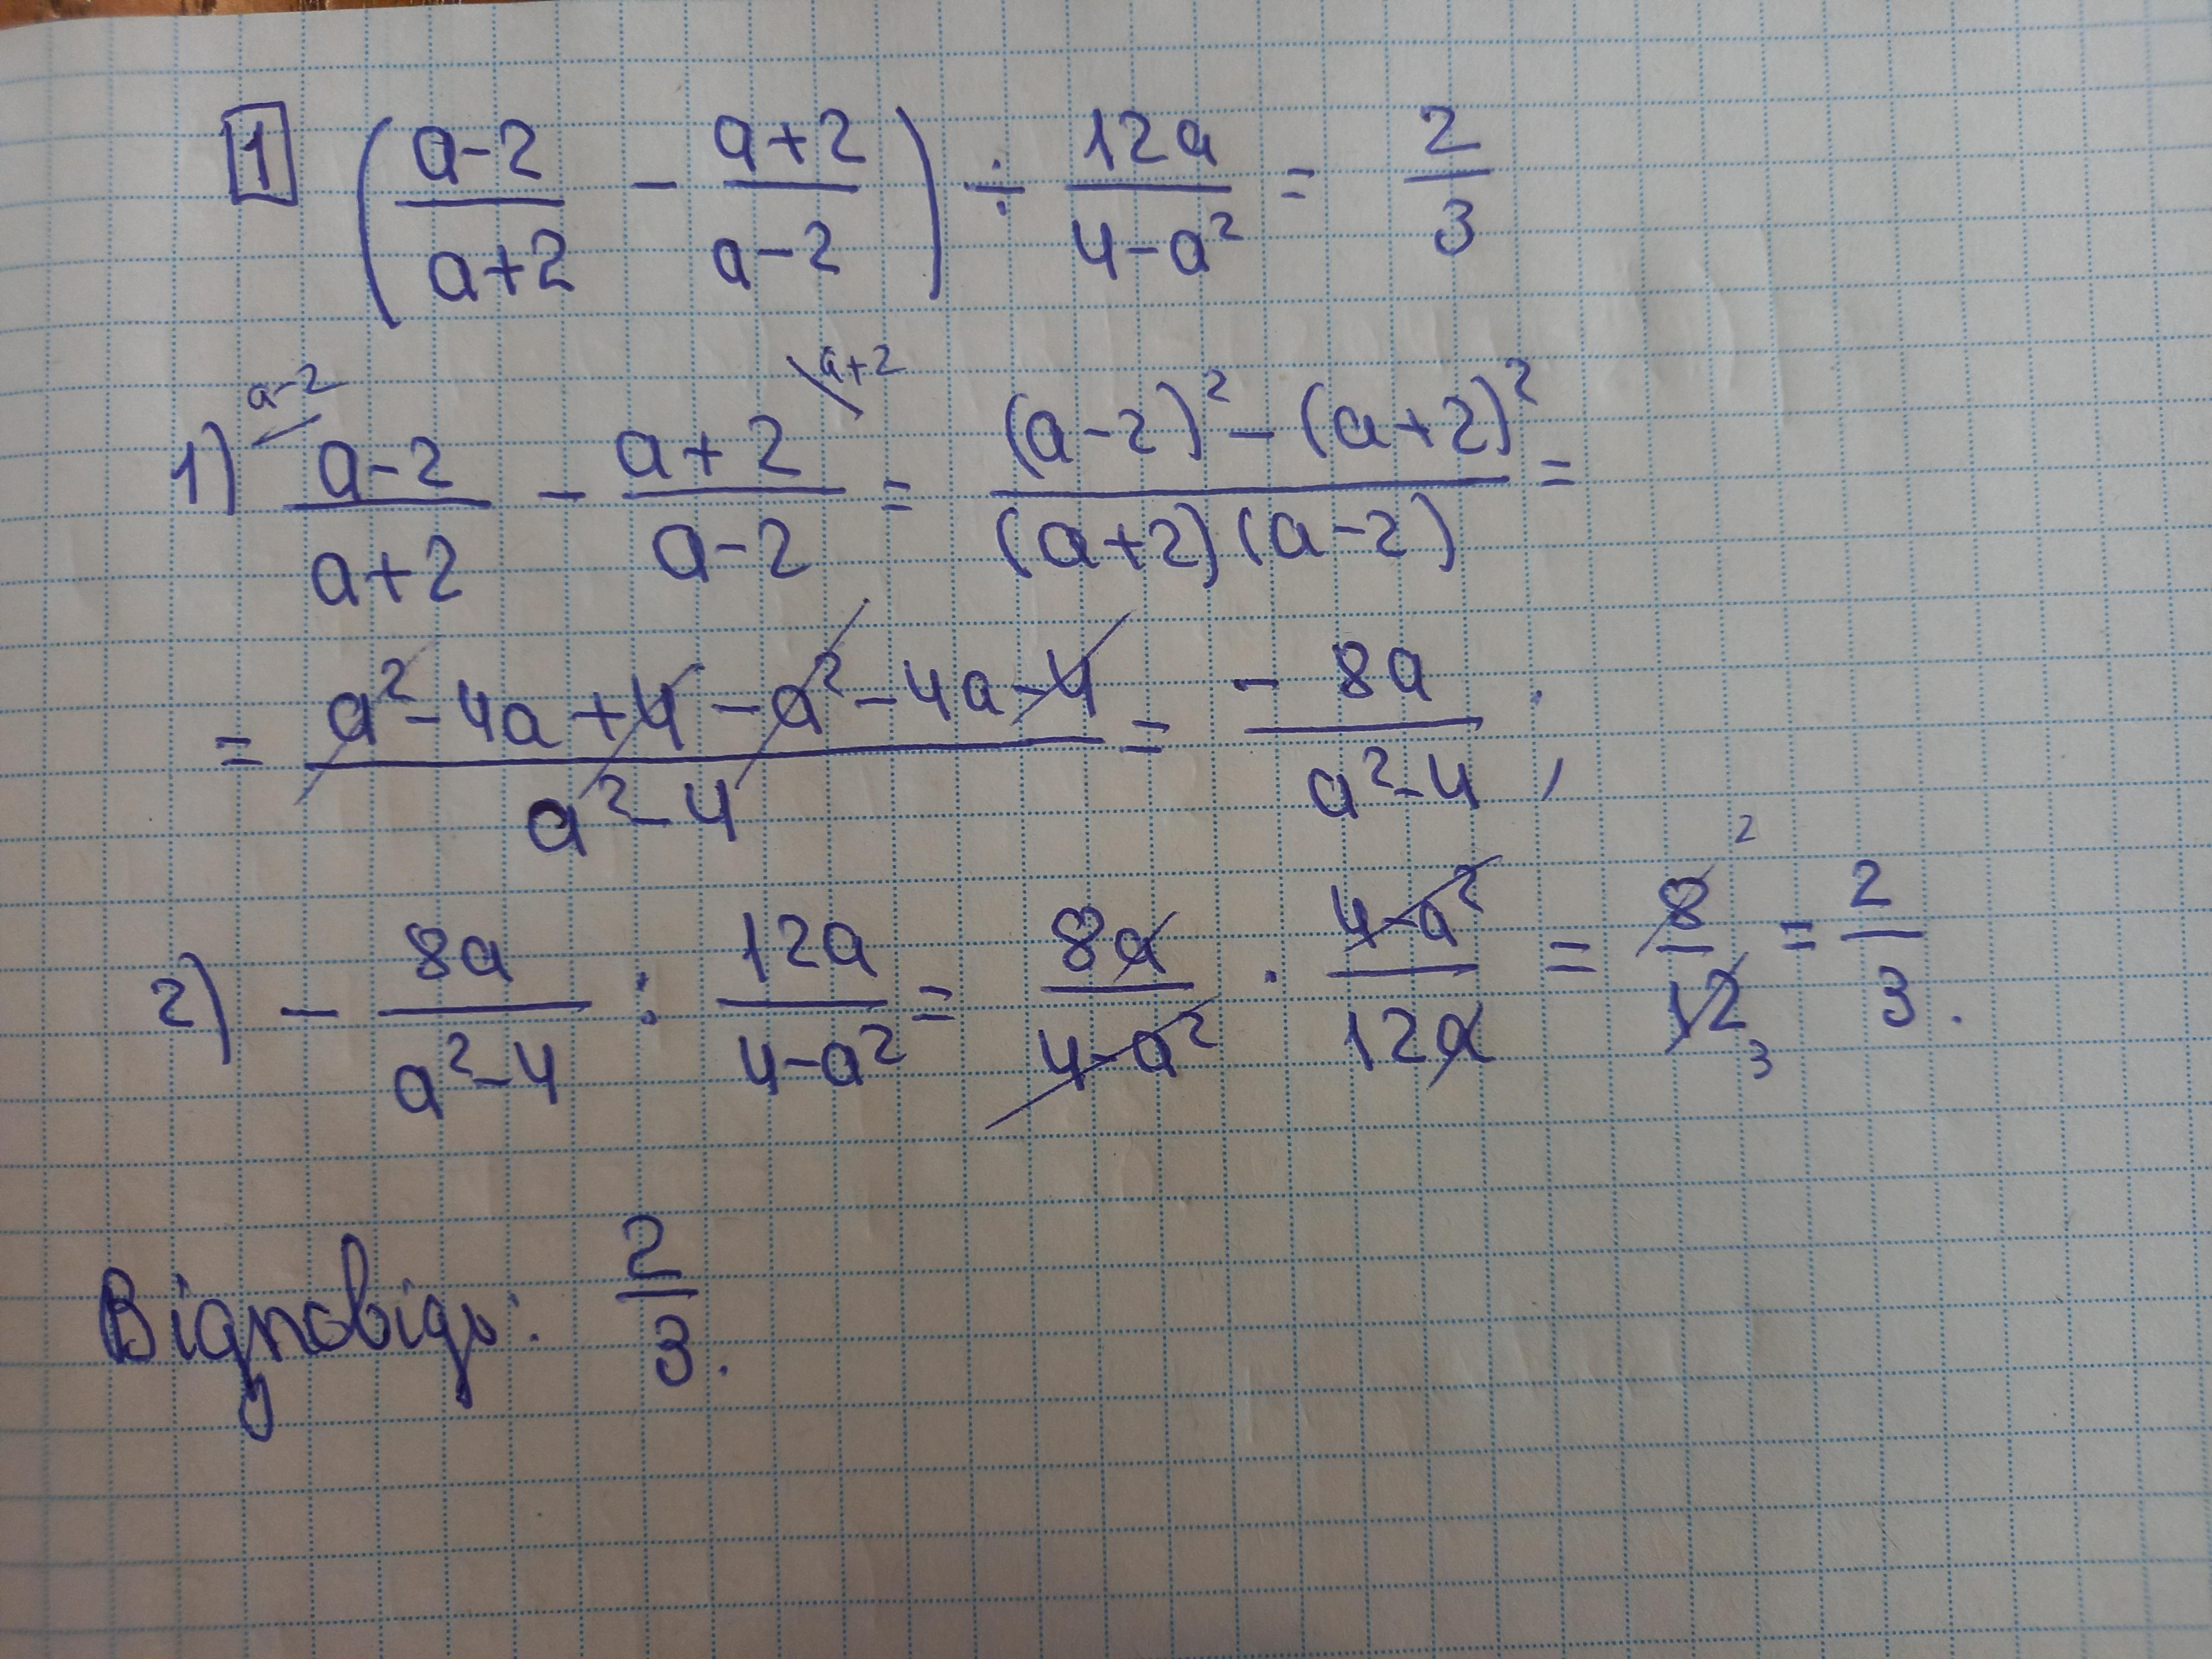 1 (a-2/a+2 - a+2/a-2) ÷ 12a/4-a² = 2/3
1) a-2/a+2 ^a-2 - a+2/a-2 ^a+2 = (a-2)² - (a+2)²/(a+2)(a-2) =
= a²-4a+4-a²-4a-4/a²-4 = - 8a/a²-4 ;
2) - 8a/a²-4 : 12a/4-a² = 8a/4-a² · 4-a²/12a = 8 ²/12 ₃ = 2/3.
Відповідь: 2/3.